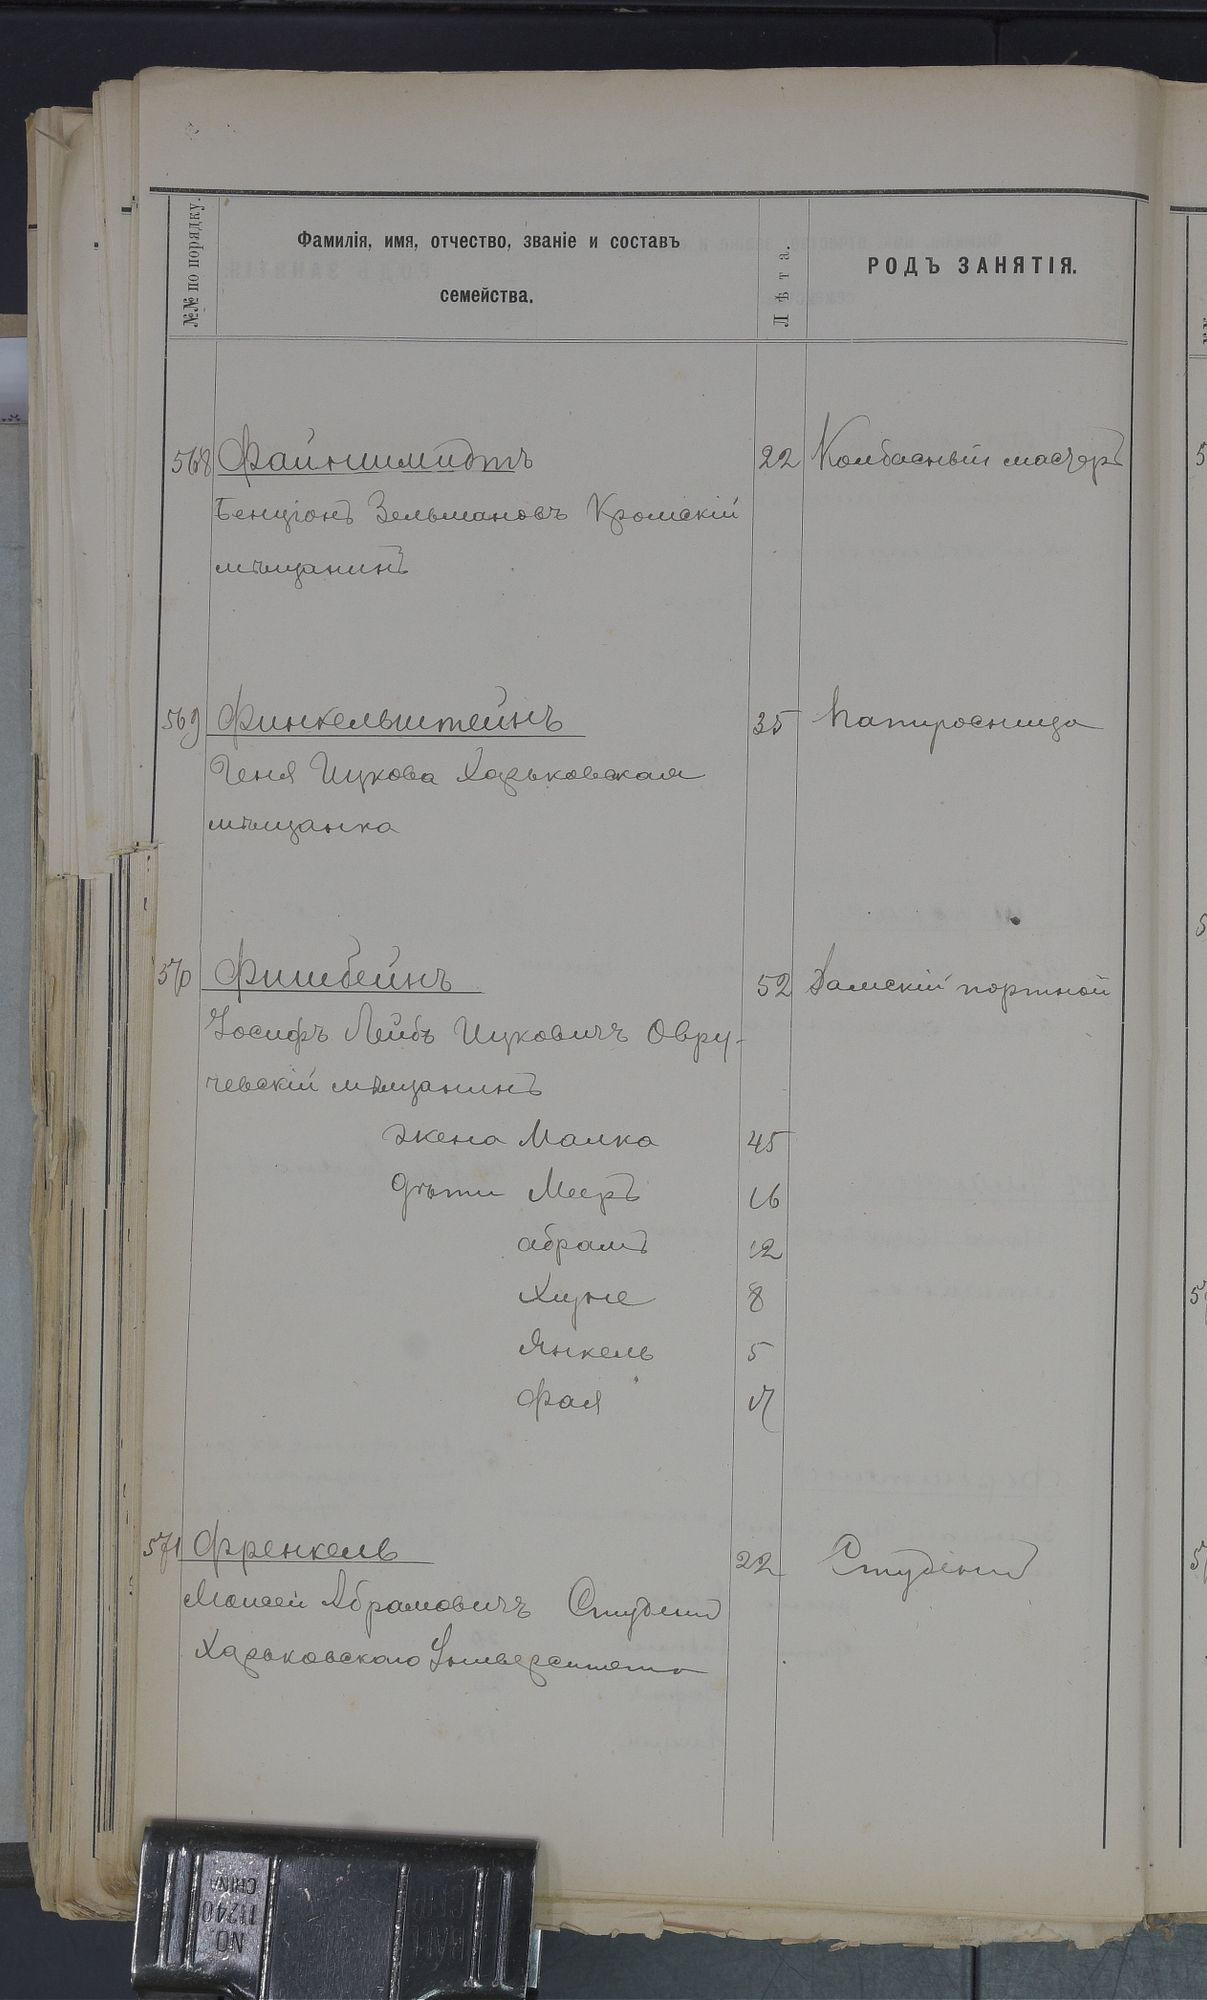 №№ по порядку.
Фамилія, имя, отчество, званіе и составъ
семейства.
Лѣта.
РОДЪ ЗАНЯТІЯ.
568 Файншмидтъ 22 Колбасный мастеръ
Бенціонъ Зельмановъ Кромскій
мѣщанинъ
569 Финкельштейнъ 35 Папиросница
Геня Ицкова Харьковская
мѣщанка
570 Фишбейнъ 52 Дамскій портной
Іосифъ Лейбъ Ицковичъ Овру-
чевскій мѣщанинъ
жена Малка 45
дѣти Мееръ 16
абрамъ 12
Хуне 8
Янкель 5
Фая
571 Френкель 22 Студентъ
Моисей Абрамовичъ Студентъ
Харьковскаго Университета
NO.
11240
CHINA